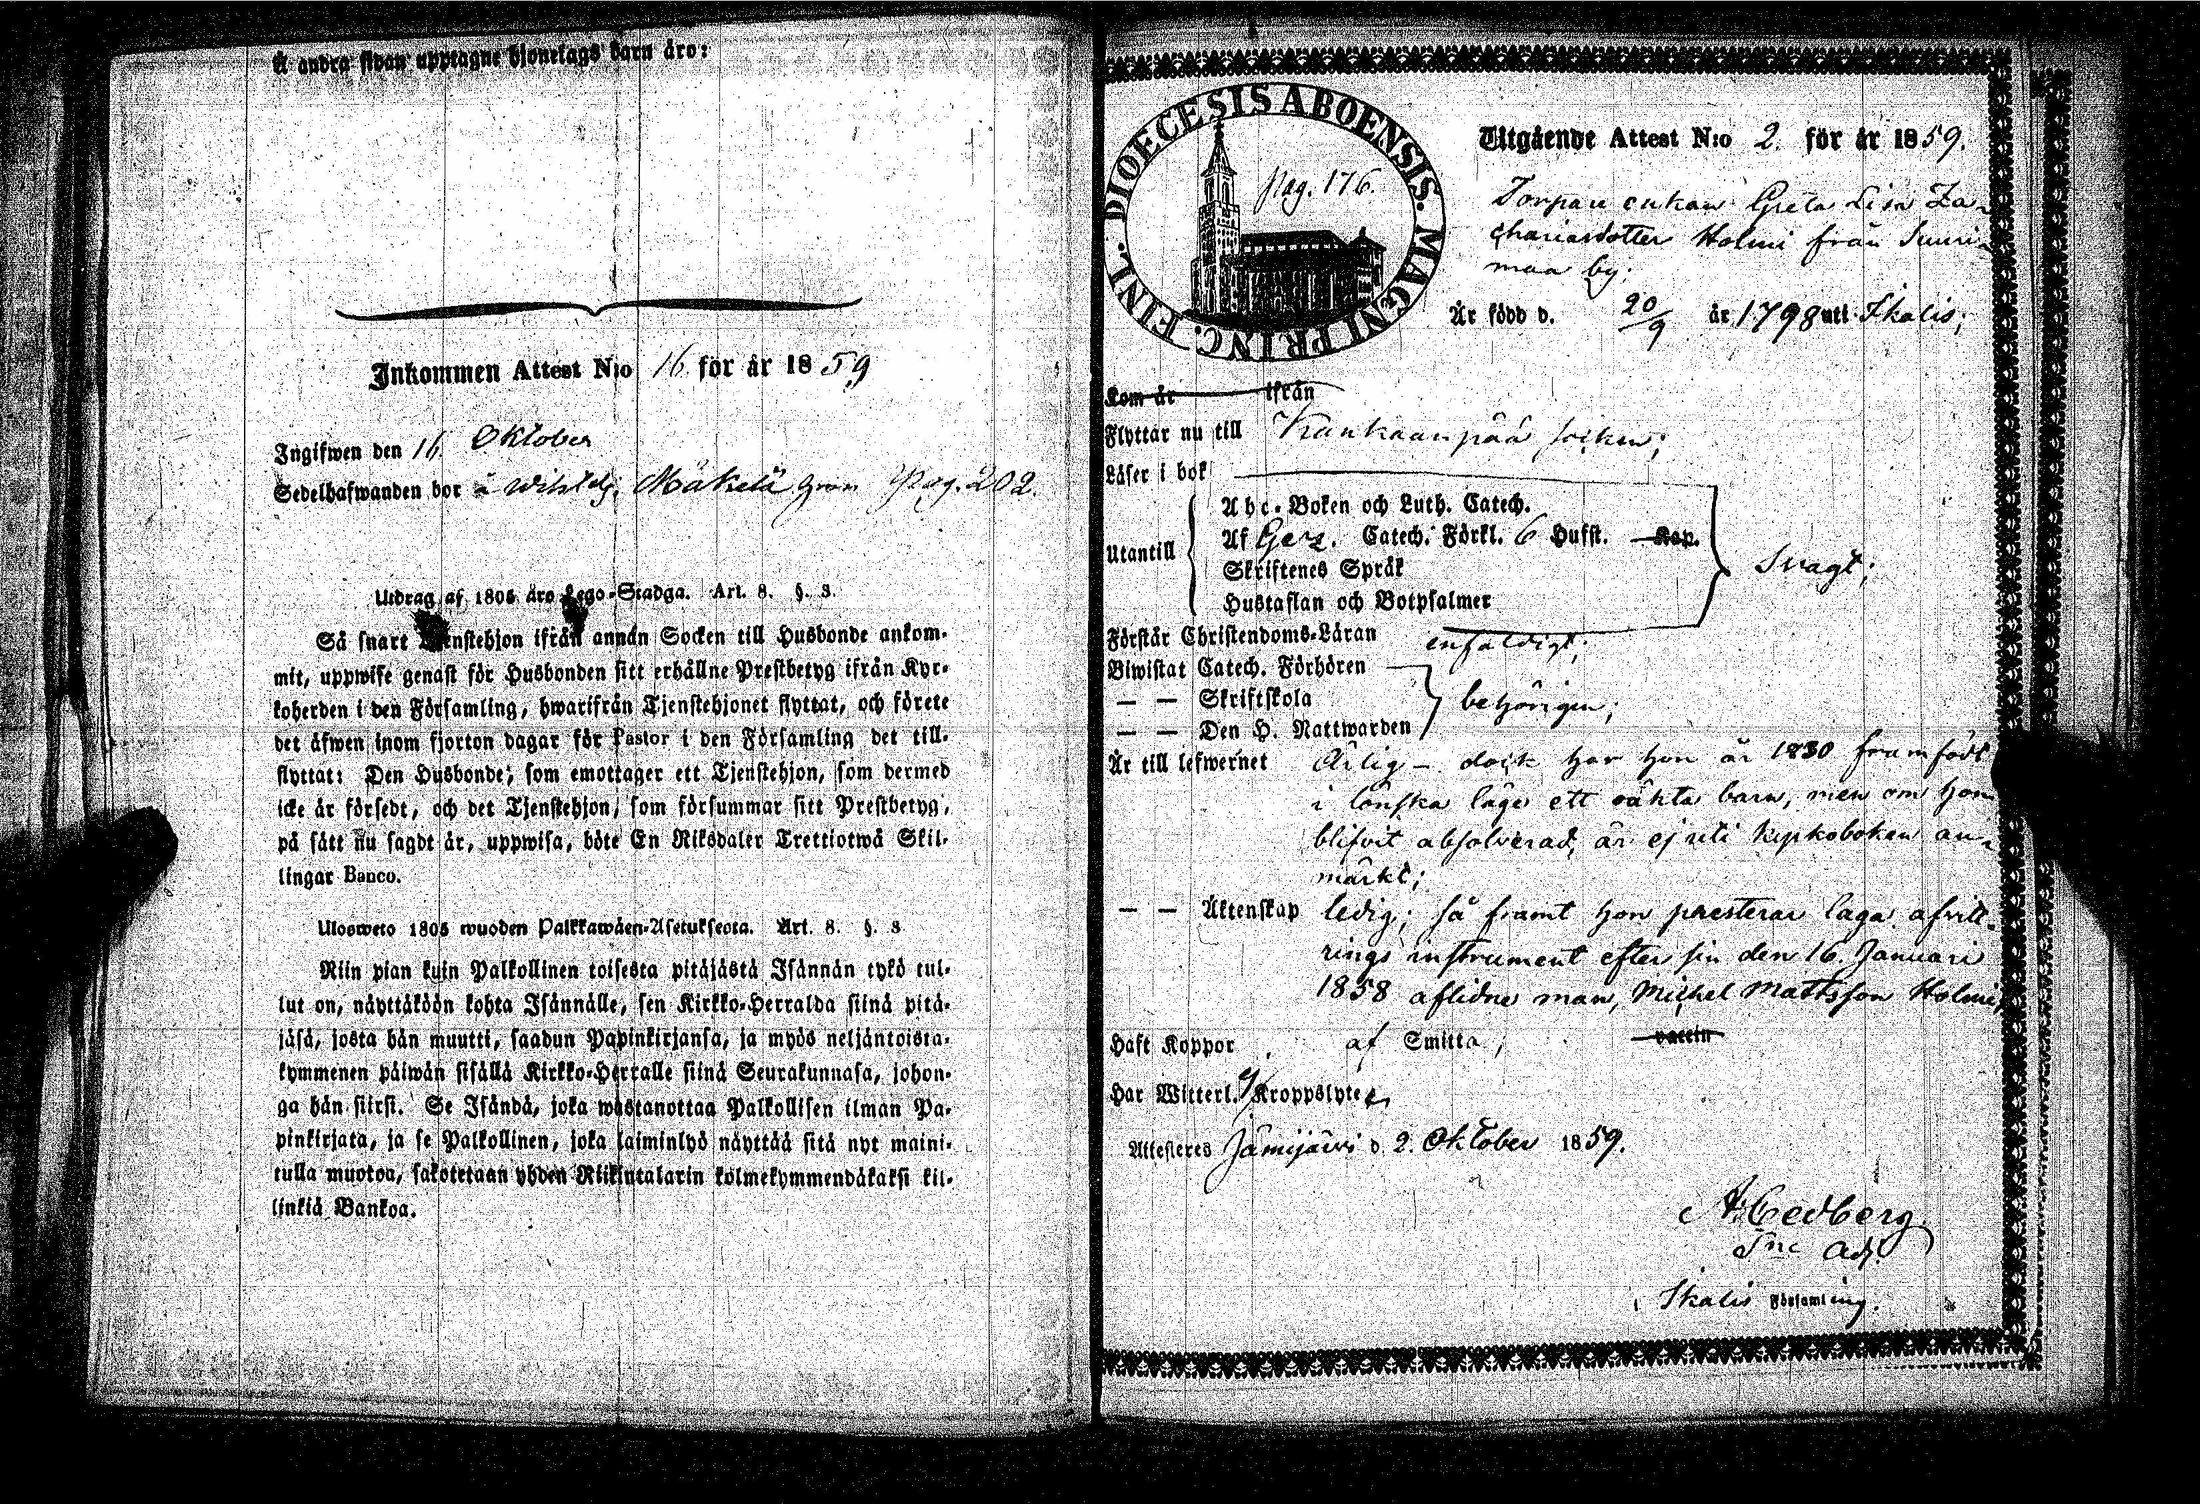 Å andra sidan upptagne hjonelags barn äro:
Inkommen Attest N:o 16. för år 1859
Ingifwen den 16. Oktober
Sedelhafwanden bor å Mäkelä Pag. 202.
Utdrag af 1805 års Lego-Stadga. Art. 8. §. 3.
Så snart Tjenstehjon ifrån annan Socken till Husbonde ankom-
mit, uppwise genast för Husbonden sitt erhållne Prestbetyg ifrån Kyr-
koherden i den Församling, hwarifrån Tjenstehjonet flyttat, och förete
det äfwen inom fjorton dagar för Pastor i den Församling det till-
flyttat: Den Husbonde, som emottager ett Tjenstehjon, som dermed
icke är försedt, och det Tjenstehjon, som försummar sitt Prestbetyg,
på sätt nu sagdt är, uppwisa, böte En Riksdaler Trettiotwå Skil-
lingar Banco.
Ulosweto 1805 wuoden Palkkawäen-Asetuksesta. Art. 8. §. 3
Niin pian kuin Palkollinen toisesta pitäjästä Isännän tykö tul-
lut on, näyttäköön kohta Isännälle, sen Kirkko-Herralda siinä pitä-
jäsä, josta hän muutti, saadun Papinkirjansa, ja myös neljäntoista-
kymmenen päiwän sisällä Kirkko-Herralle siinä Seurakunnasa, johon-
ga hän siirsi. Se Isändä, joka wastanottaa Palkollisen ilman Pa-
pinkirjata, ja se Palkollinen, joka laiminlyö näyttää sitä nyt maini-
tulla muotoa, sakotetaan yhden Riikintalarin kolmekymmendäkaksi kil-
linkiä Bankoa.
DIOECESIS ABOENSIS. MAGNI PRINC. FINL.
pag. 176.
Utgående Attest N:o 2. för år 1859.
Torpare enkan Greta Lisa Za-
chariasdotter Holmi från Suuri-
maa by.
Är född d. 20/9 år 1798 uti Ikalis;
Kom år ifrån
Flyttar nu till Kankaanpää socken;
Läser i bok
Utantill
Abc-Boken och Luth. Catech.
Af Gez. Catech. Förkl. 6 Hufst. Kap.
Skriftenes Språk
Hustaflan och Botpsalmer
Svagt;
Förstår Christendoms-Läran enfaldigt;
Biwistat Catech. Förhören
— — Skriftskola
— — Den H. Nattwarden
behörigen;
Är till lefwernet Ärlig – dock har hon år 1830 framfödt
i lönska läge ett oäkta barn, men om hon
blifvit absolverad, är ej uti kyrkoboken an-
märkt;
— — Äktenskap ledig; så framt hon presterar laga afvitt-
rings instrument efter sin den 16. Januari
1858 aflidne man, Michel Mattsson Holmi;
Haft Koppor af Smitta; vaccin
Har Witterl. Kroppslyte
Attesteres Jämijärvi d. 2. Oktober 1859.
A. Cedberg
Adj.
i Ikalis Församling.